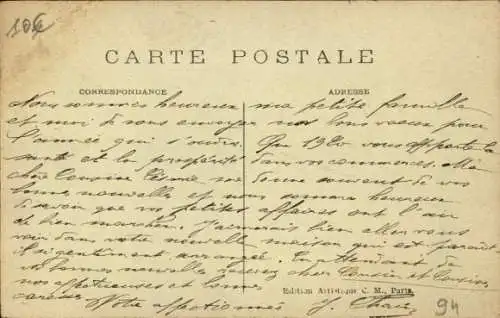 10€
CARTE POSTALE
CORRESPONDANCE
ADRESSE
Nous sommes heureux ma petite famille
et moi de vous envoyer nos bons vœux pour
l'année qui s'ouvre. Que 1920 vous apporte la
santé et la prospérité dans vos commerces. Ma
chère Cousine donne souvent de vos
bonnes nouvelles et nous sommes heureux
de savoir que vos petites affaires ont l'air
de bien marcher. J'aimerais bien aller vous
voir dans votre nouvelle maison qui est paraît
il gentiment arrangée. En attendant de
vos bonnes nouvelles recevez cher Cousin et Cousine
nos affectueuses et bonnes
caresses. Votre affectionné J.
Edition Artistique C. M., Paris.
94